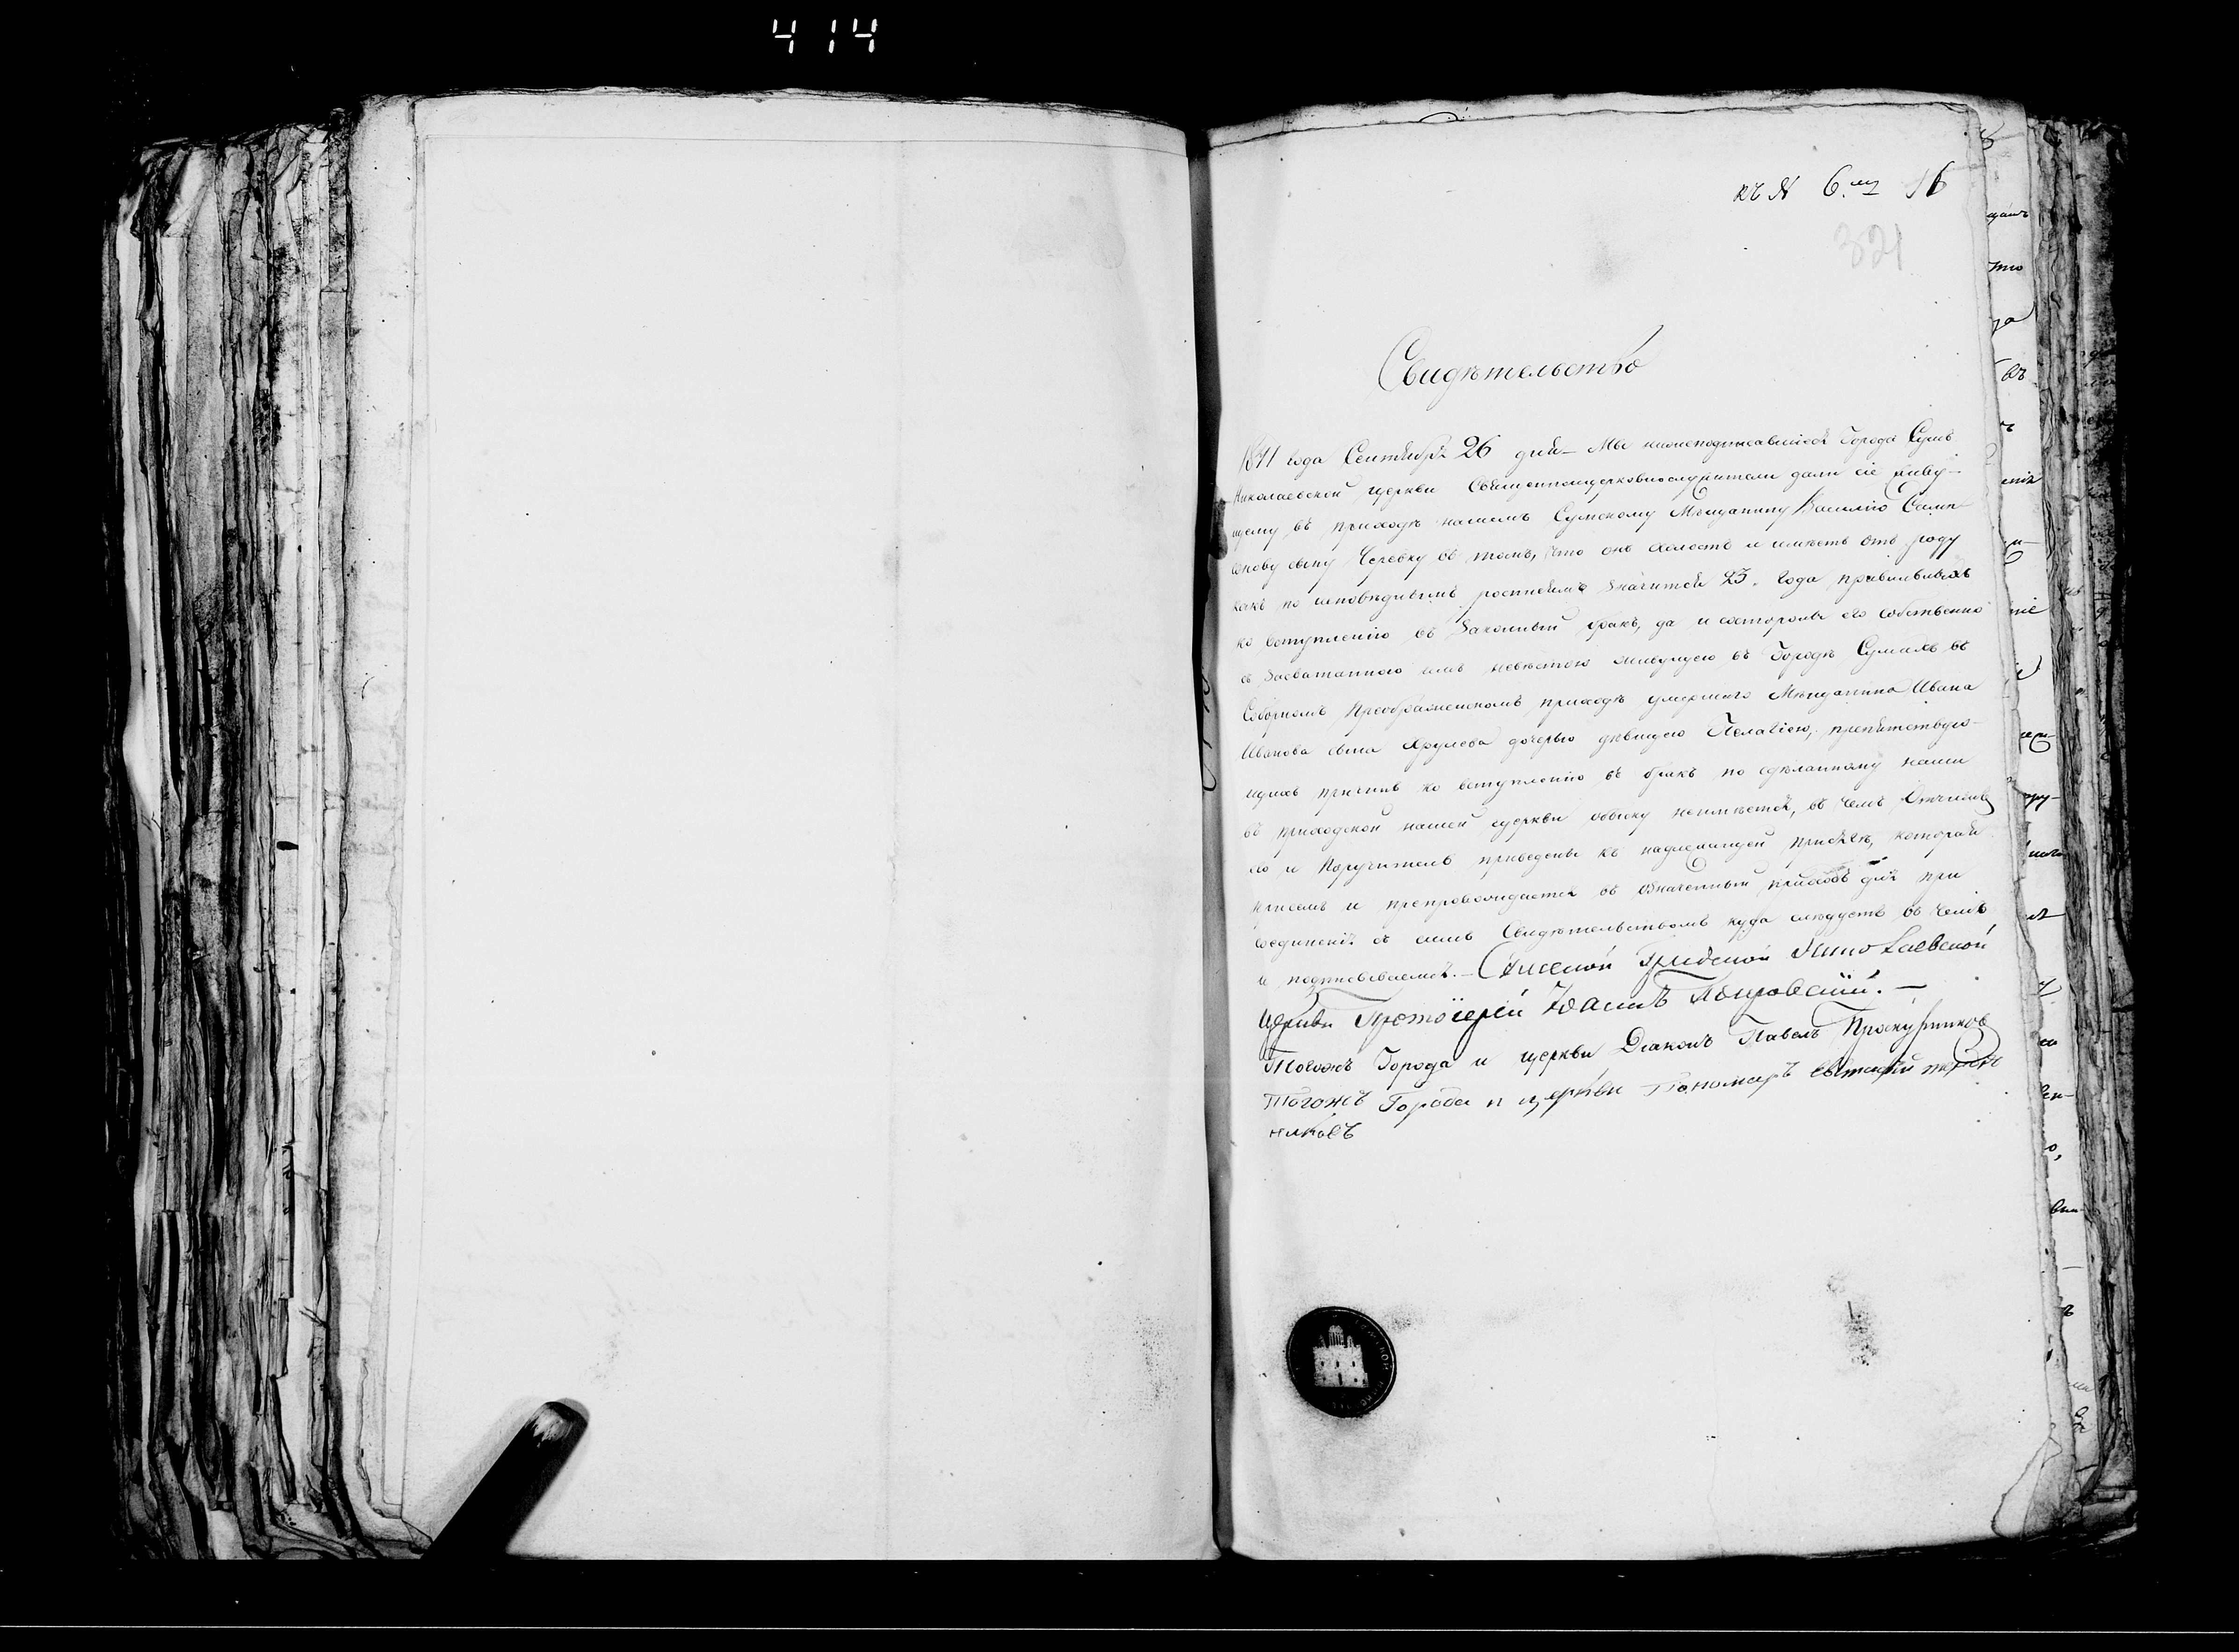 414
къ № 6.му 16
321
Свидѣтельство
1841 года Сентября 26 дня – Мы нижеподписавшіеся Города Сумъ
Николаевской церкви Священноцерковнослужители дали сіе живу-
щему въ приходѣ нашемъ Сумскому Мѣщанину Василію Самп
сонову сыну Черевку въ томъ, что онъ холостъ и имѣетъ отъ роду
какъ по исповѣднымъ росписямъ значится 23. года правильныхъ
ко вступленію въ законный бракъ, да и съ стороны его собственно
съ засватанною имъ невѣстою живущею въ Городѣ Сумахъ въ
Соборномъ Преображенскомъ приходѣ умершаго Мѣщанина Ивана
Иванова сына дочерью дѣвицею Пелагіею, препятствую-
щихъ причинъ ко вступленію въ бракъ по сдѣланному нами
въ приходской нашей церкви обыску неимѣется, въ чемъ
и Поручители приведены къ надлежащей присягѣ, которая
присемъ и препровождается въ означенный приходъ для при
соединенія съ симъ Свидѣтельствомъ куда слѣдуетъ въ чемъ
и подписываемся. – Сумской Градской Николаевской
Церкви Протоіерей Іоаннъ –
Тогожъ Города и церкви Діаконъ Павелъ
Тогожъ Города и церкви Пономарь
никовъ